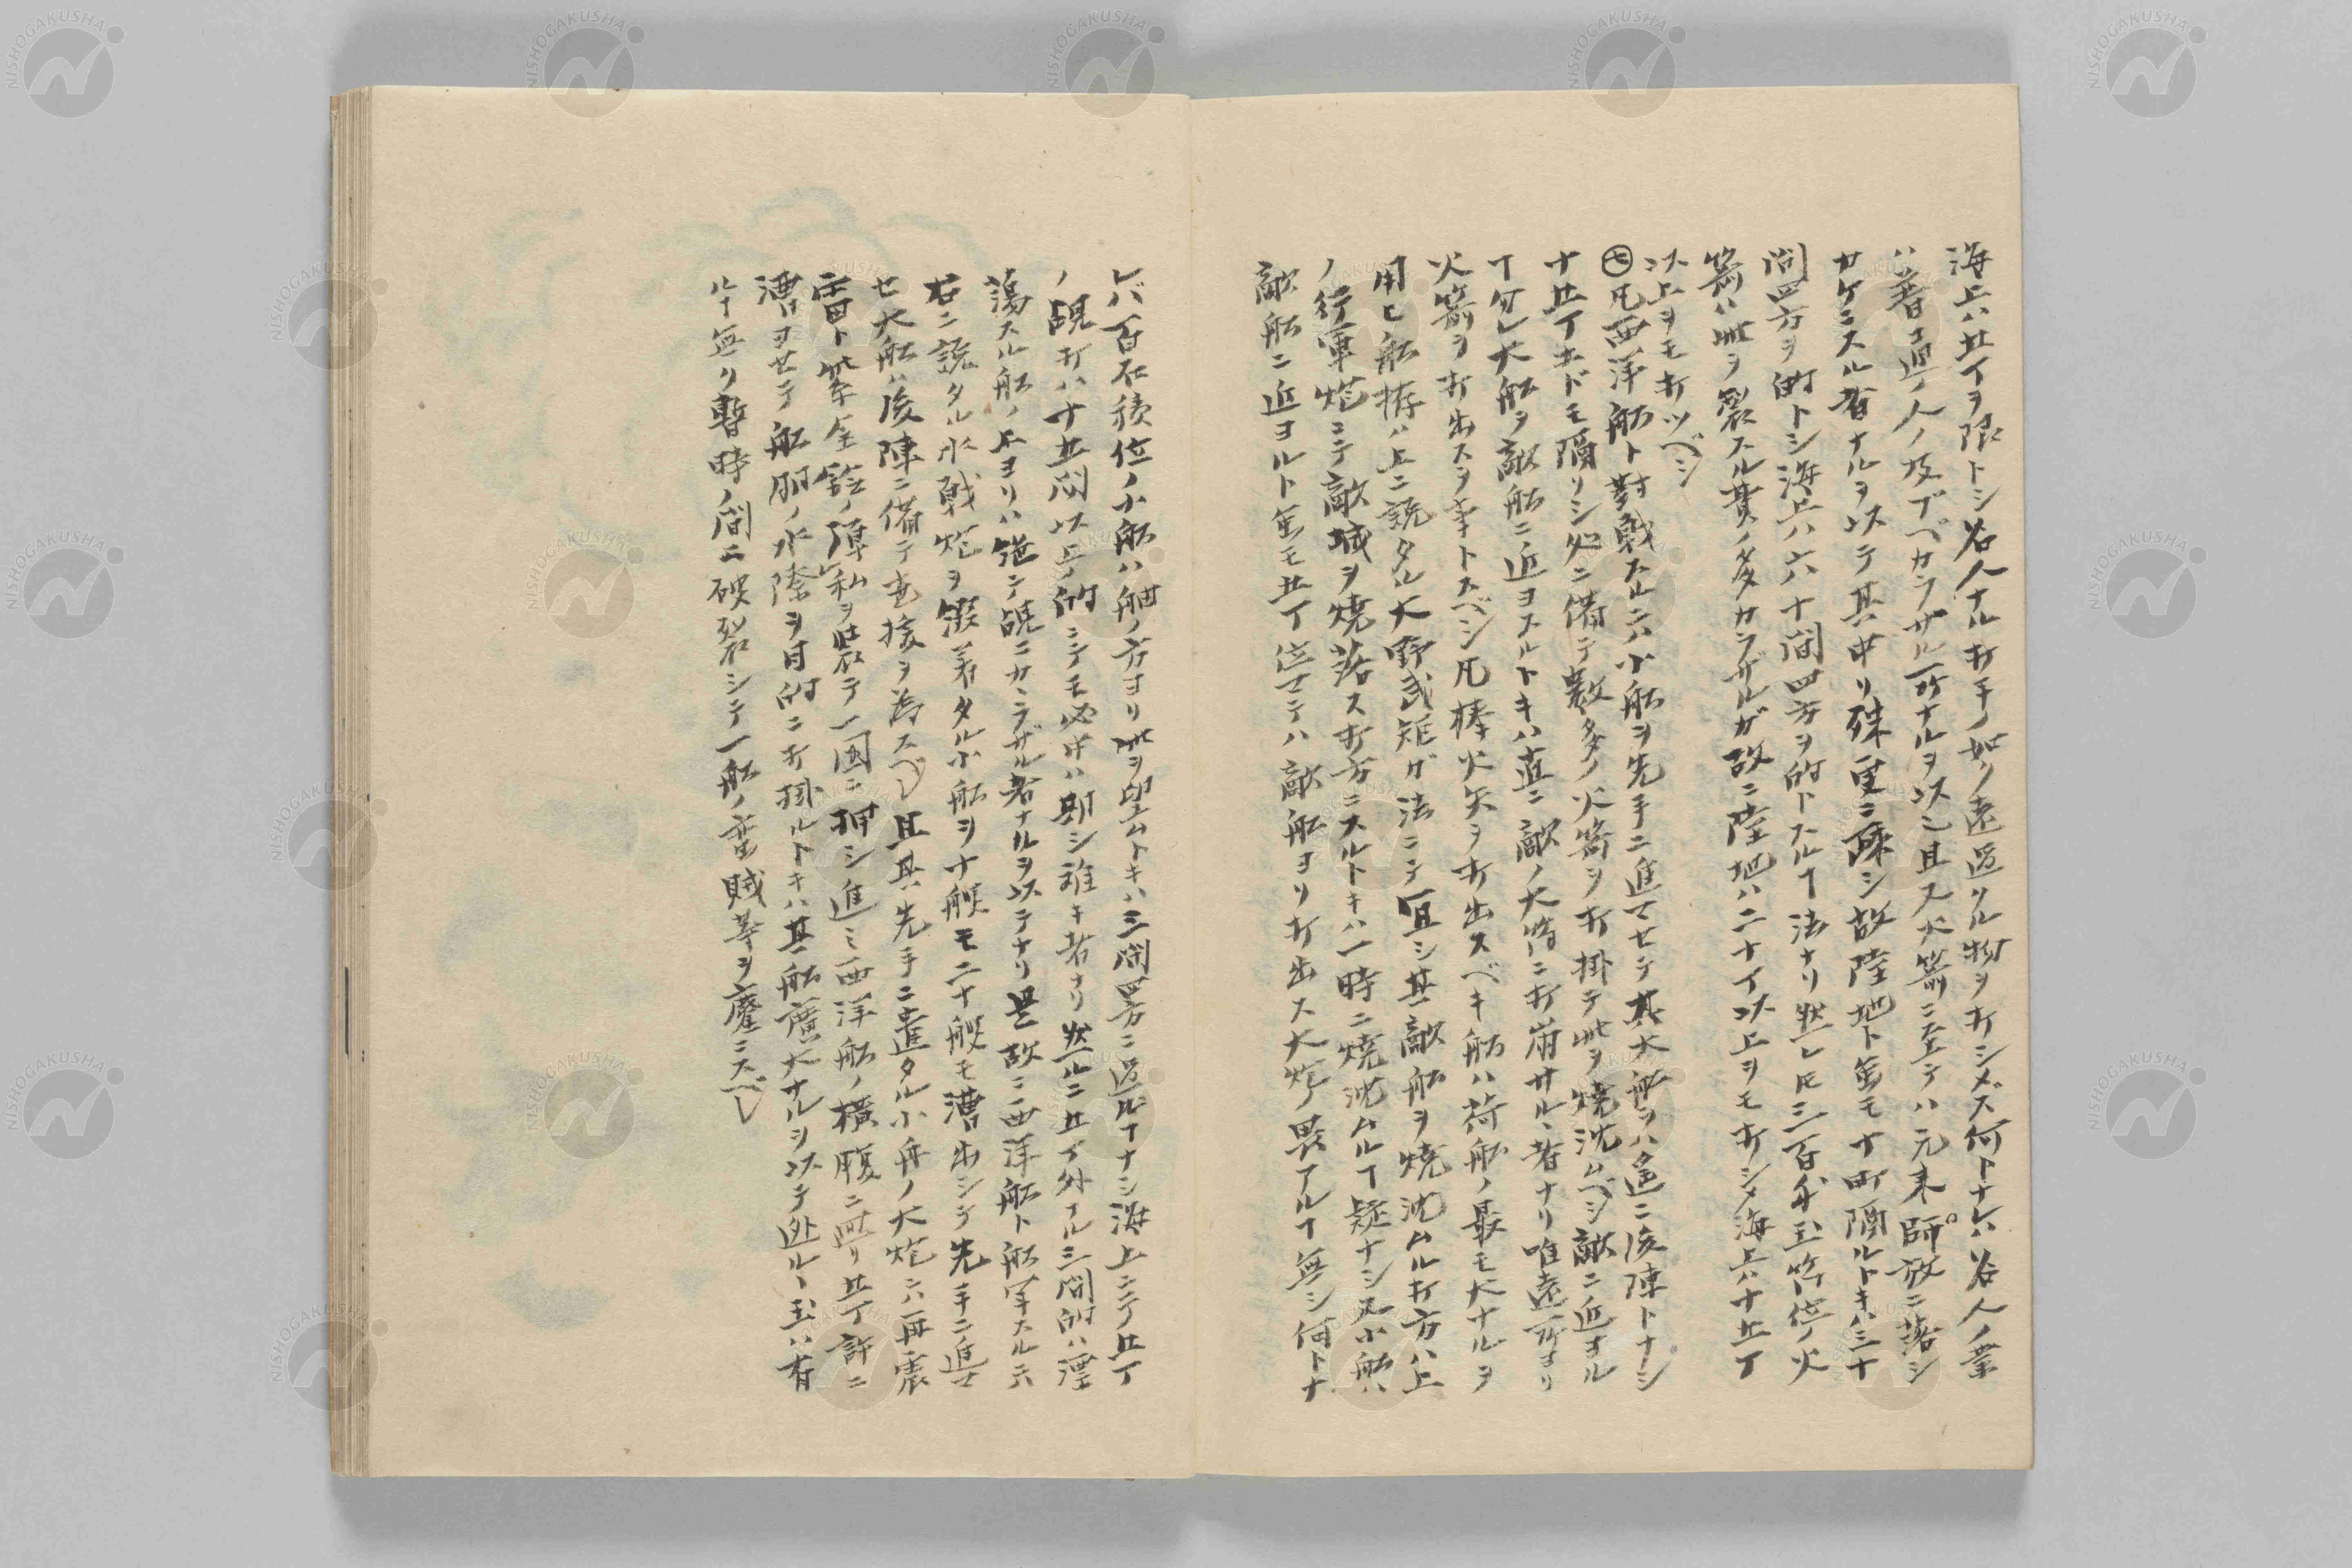 海上ハ廿丁ヲ限トシ谷人ナル打手ノ如ノ遠過リル物ヲ打シメズ何トナレハ谷人ノ業
ハ著ヨ直ノ人ノ及ブベカラザル所ナルヲ以也且又火箭ニ至テハ元来師放ニ落シ
カケニスル者ナルヲ以テ其中リ殊更ニ疎シ故陸地ト雖モ十町隔ルトキハ三十
間四方ヲ的トシ海上ハ六十間四方ヲ的トスルヿ法ナリ然レ𪜈三百余玉筒位ノ火
箭ハ此ヲ製スル費ノ多カラザルガ故ニ陸地ハ二十丁以上ヲモ打シメ海上ハ十丗丁
以上ヲモ打ツベシ
㊆凡西洋舶ト對戰スルニハ小船ヲ先手ニ進マセテ其大船ヲハ遙ニ後陣トナシ
十丗丁ホドモ隔リシ処ニ備テ數多ノ火箭ヲ打掛テ此ヲ燒沈ムベシ敵ニ近ヨル
ヿ勿レ大船ヲ敵船ニ近ヨスルトキハ直ニ敵ノ大筒ニ打崩サルヽ者ナリ唯遠所ヨリ
火箭ヲ打出スヲ事トスベシ凡棒火矢ヲ打出スベキ船ハ荷船ノ最モ大ナルヲ
用ヒ船拵ハ上ニ説タル大野弐矩ガ法ニテ宜シ其敵船ヲ燒沈ムル打方ハ上
ノ行軍炮ニテ敵城ヲ燒落ス打方ニスルトキハ一時ニ燒沈ムルヿ疑ナシ又小船ハ
敵船ニ近ヨルト雖モ廿丁位マテハ敵船ヨリ打出ス大炮ノ畏アルヿ無シ何トナ
レバ百石積位ノ小船ハ舳ノ方ヨリ此ヲ望ムトキハ三間四方ニ過ルヿナシ海上ニテ廿丁
ノ規打ハ十廿間以上ノ的ニテモ必中ハ期シ難キ者ナリ然ルニ廿丁外ナル三間的ハ漂
蕩スル船ノ上ヨリハ絶テ規ニカヽラザル者ナルヲ以テナリ是故ニ西洋船ト船軍スルニハ
右ニ説タル水戰炮ヲ備ヘ著タル小船ヲ十艘モ二十艘モ漕出シテ先手ニ進マ
セ大船ハ後陣ニ備テ應援ヲ為スベシ且其先手ニ進タル小舟ノ大炮ニハ再震
雷ト筆全鎔ノ彈丸ヲ裝テ一圖ニ押シ進ミ西洋船ノ横腹ニ廻リ廿丁許ニ
漕ヨセテ船胴ノ水際ヲ目的ニ打掛ルトキハ其船廣大ナルヲ以テ迯ルヽ玉ハ有
ルヿ無リ暫時ノ間ニ破裂シテ一船ノ童賊等ヲ塵ニスベシ